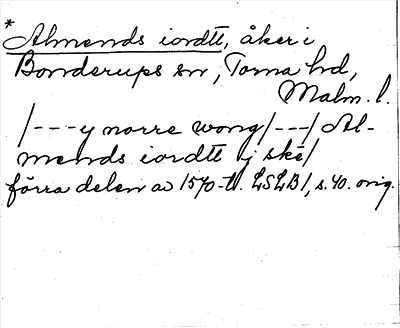 * Almends iordtt, åker i
Bonderups sn, Torna hd,
Malm. l.
/---y norre wong/---/ Al-
mends iordtt ij ske/
förra delen av 1570-t. LSLB 1, s. 40. orig.